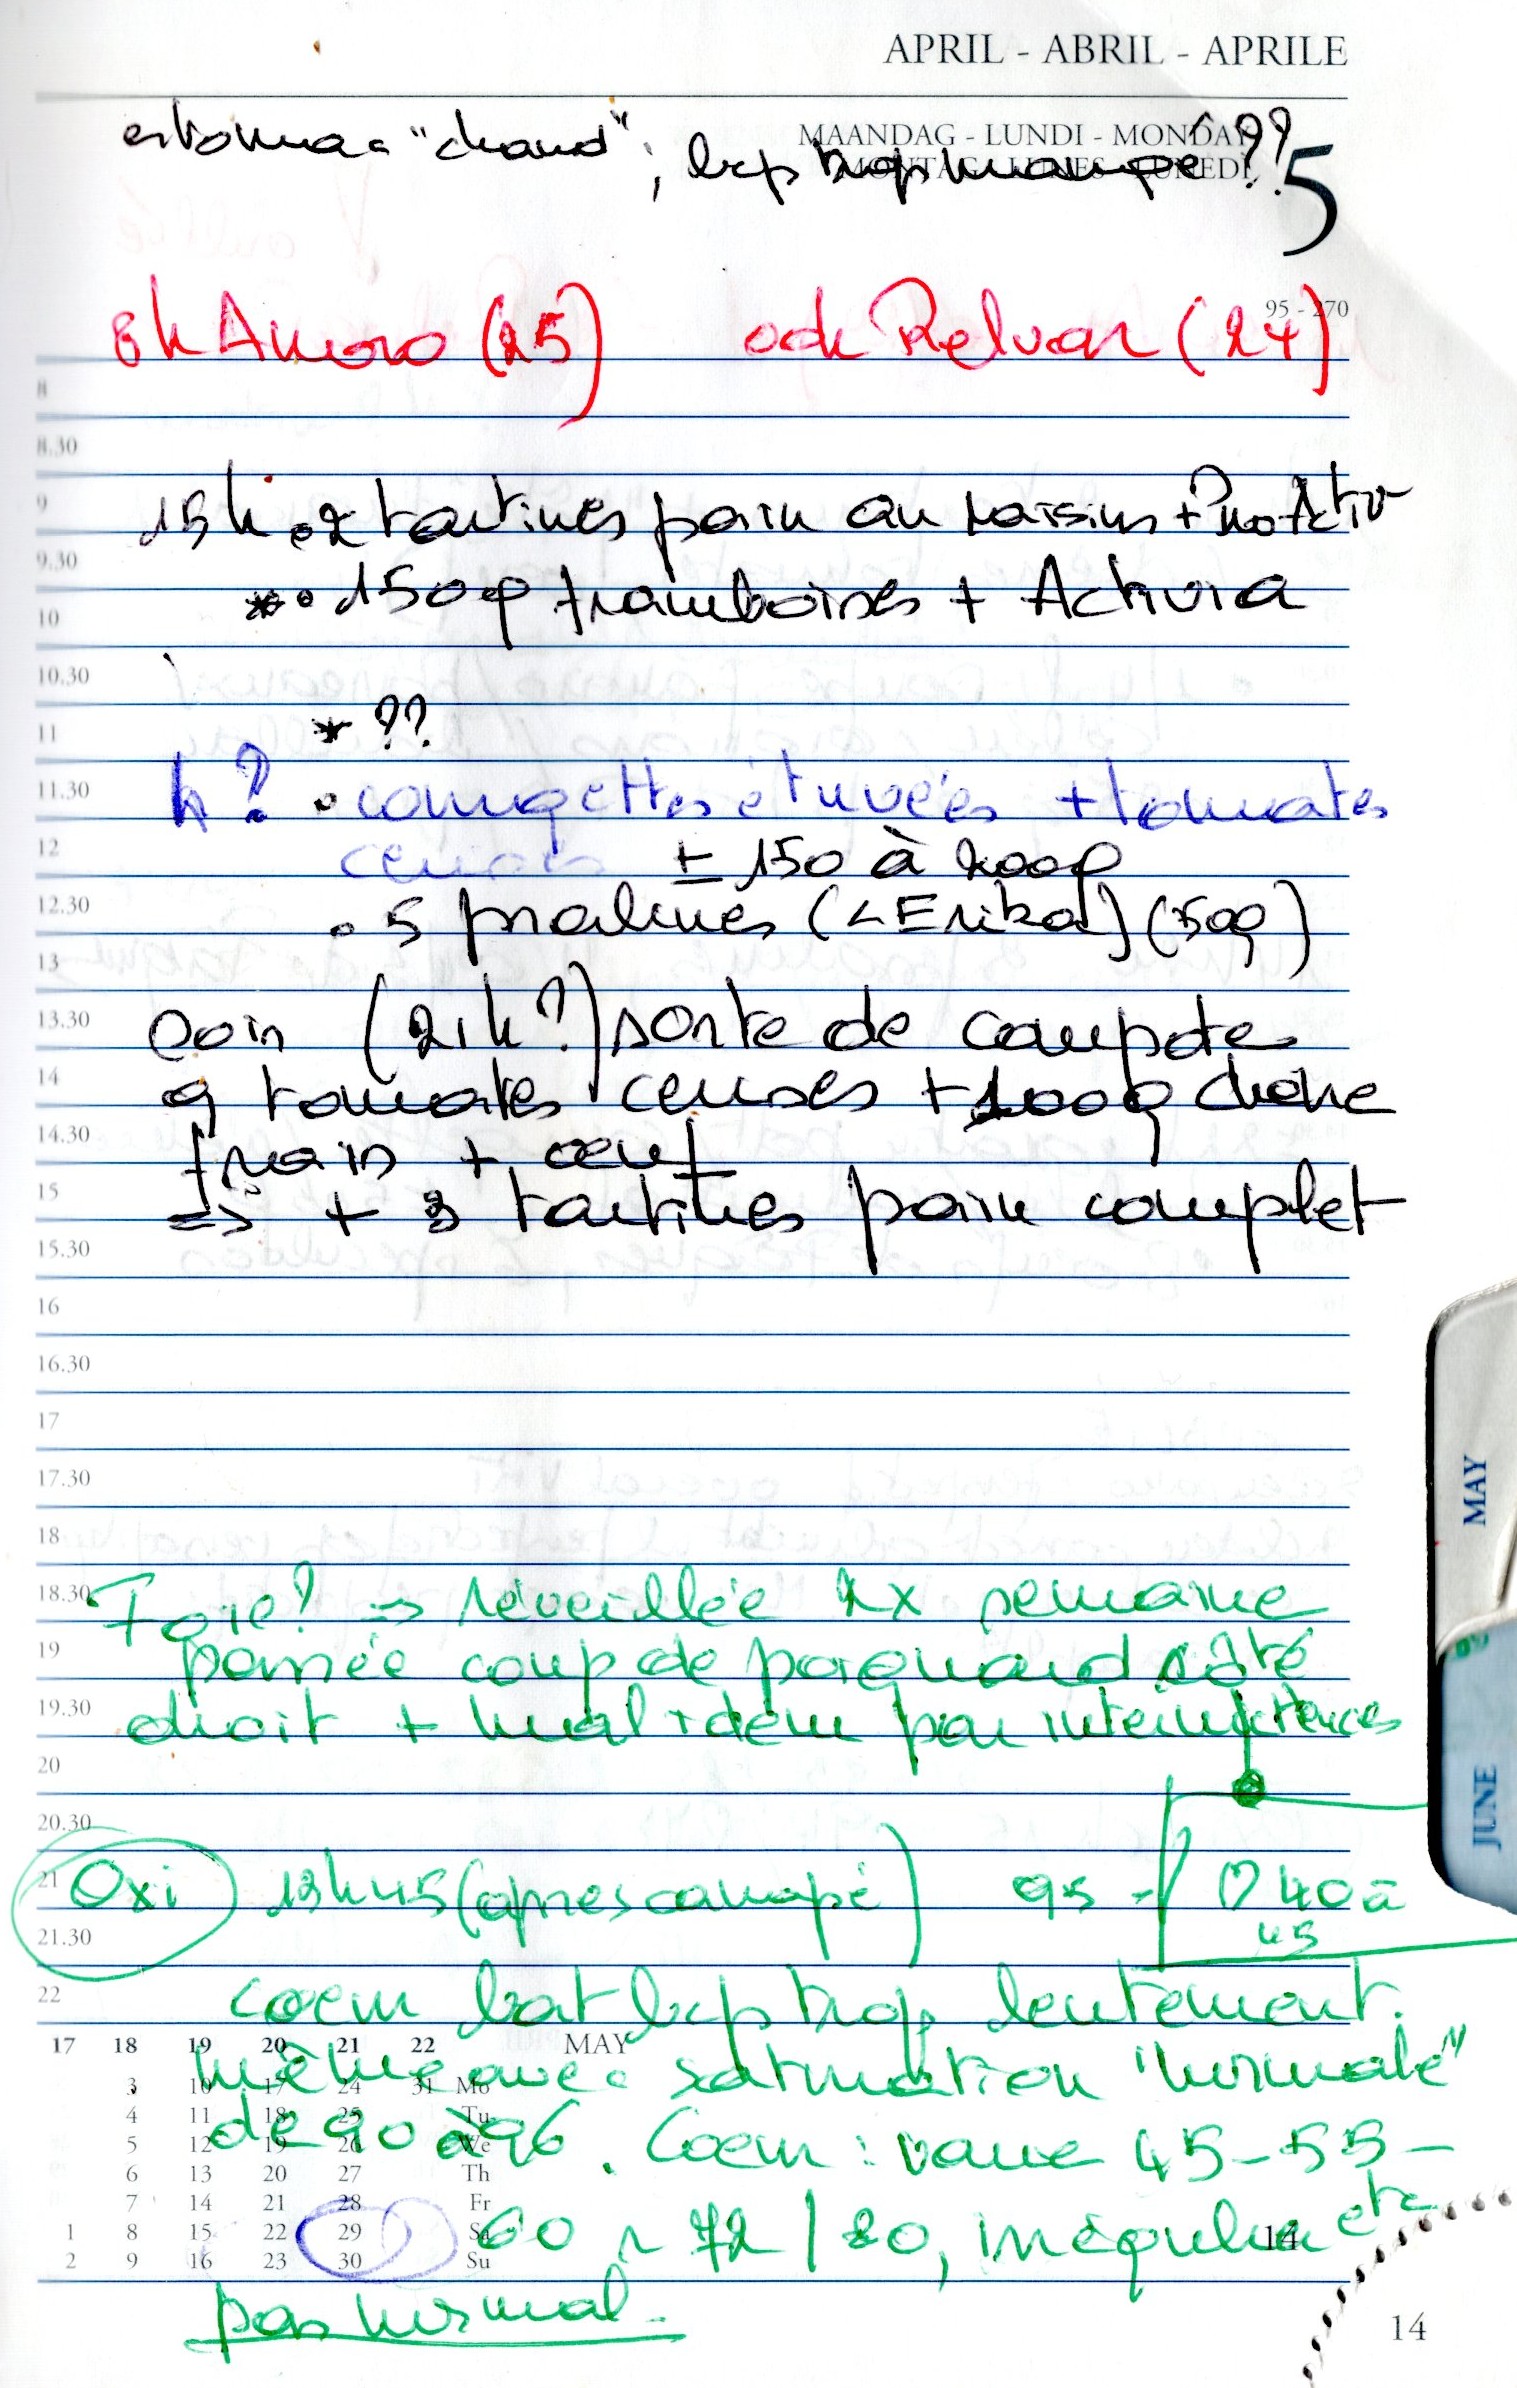 APRIL - ABRIL - APRILE
MAANDAG - LUNDI - MONDAY
MONTAG - LUNES - LUNEDI
5
estomac "chaud", bcp trop mangé ??
95 - 270
8h Amoro (25) och Relvar (24)
8
8.30
15h . 2 tartines pain au raisins + ProActiv
9
9.30
* . 150g framboises + Activia
10
10.30
* ??
11
h? . courgettes étuvées + tomates
11.30
cerises ± 150 à 200g
12
. 5 pralines (< Erika) (50g)
12.30
13
Soir (21h?) sorte de compote
13.30
tomates cerises + 100g chèvre
14
frais + oeuf
14.30
=> + 3 tartines pain complet
15
15.30
16
16.30
17
17.30
18
Foie? => réveillée 2x semaine
18.30
passée coup de poignard côté
19
droit + mal idem par intermittences
19.30
20
20.30
Oxi 13h45 (après canapé) 95 - ♡ 40 à
45
21
21.30
coeur bat bcp trop lentement.
22
même avec saturation "normale"
de 90 à 96. Coeur : varie 45-55-
60 ~ 72/80, irrégulier etc
pas normal.
17 18 19 20 21 22 MAY
3 10 17 24 31 Mo
4 11 18 25 Tu
5 12 19 26 We
6 13 20 27 Th
7 14 21 28 Fr
1 8 15 22 29 Sa
2 9 16 23 30 Su
14
14
MAY
JUNE